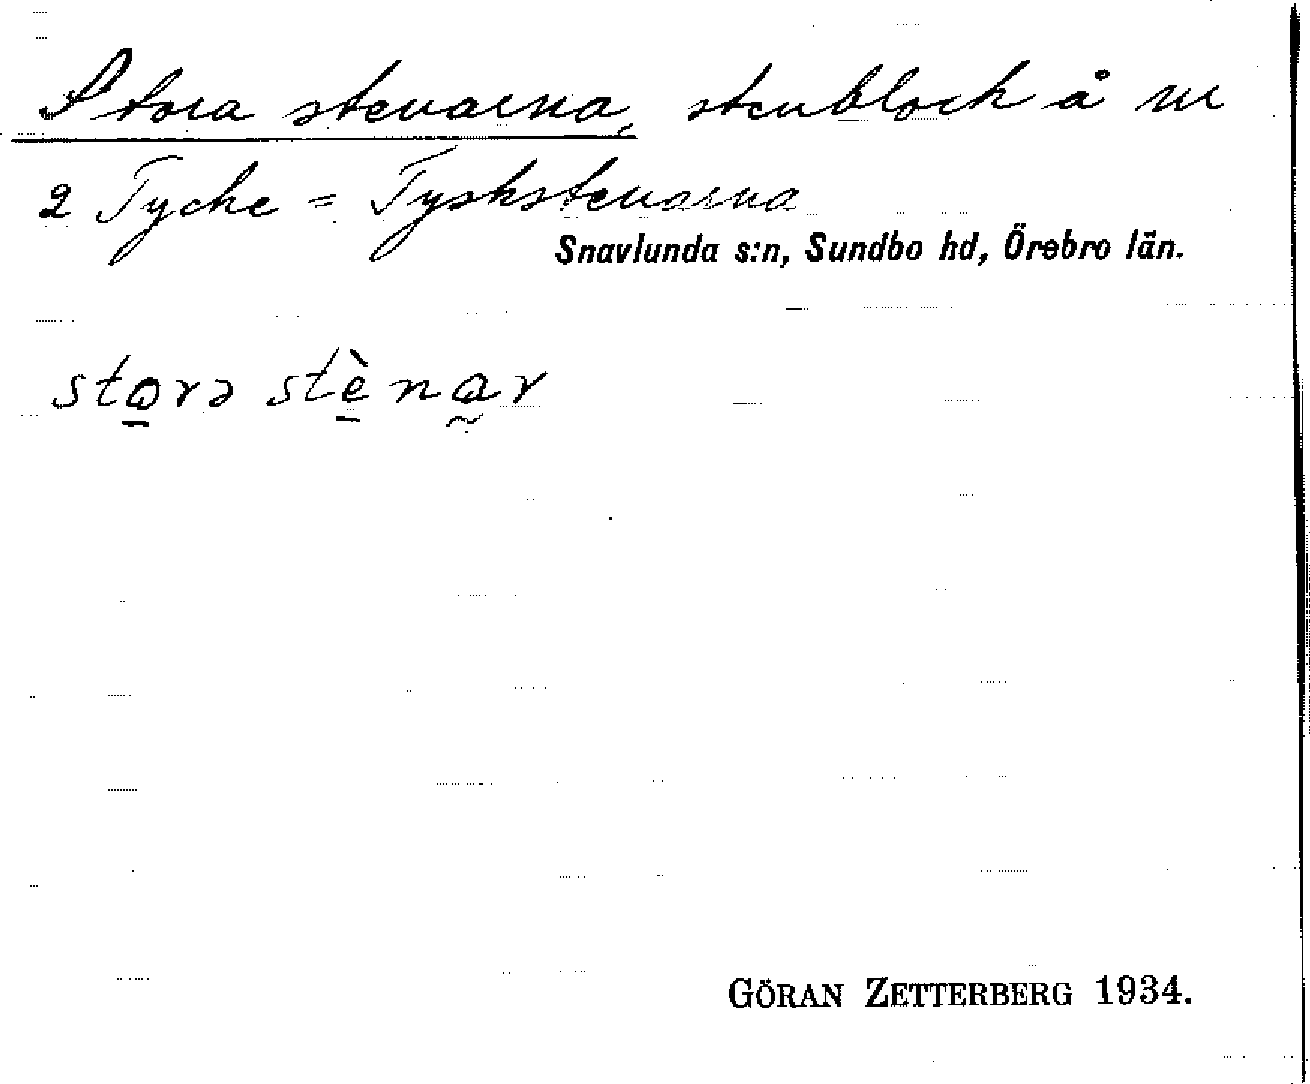 Stora stenarna, stenblock å nr
2 Tycke = Tyskstenarna
Snavlunda s:n, Sundbo hd, Örebro län.
storə stènar
GÖRAN ZETTERBERG 1934.